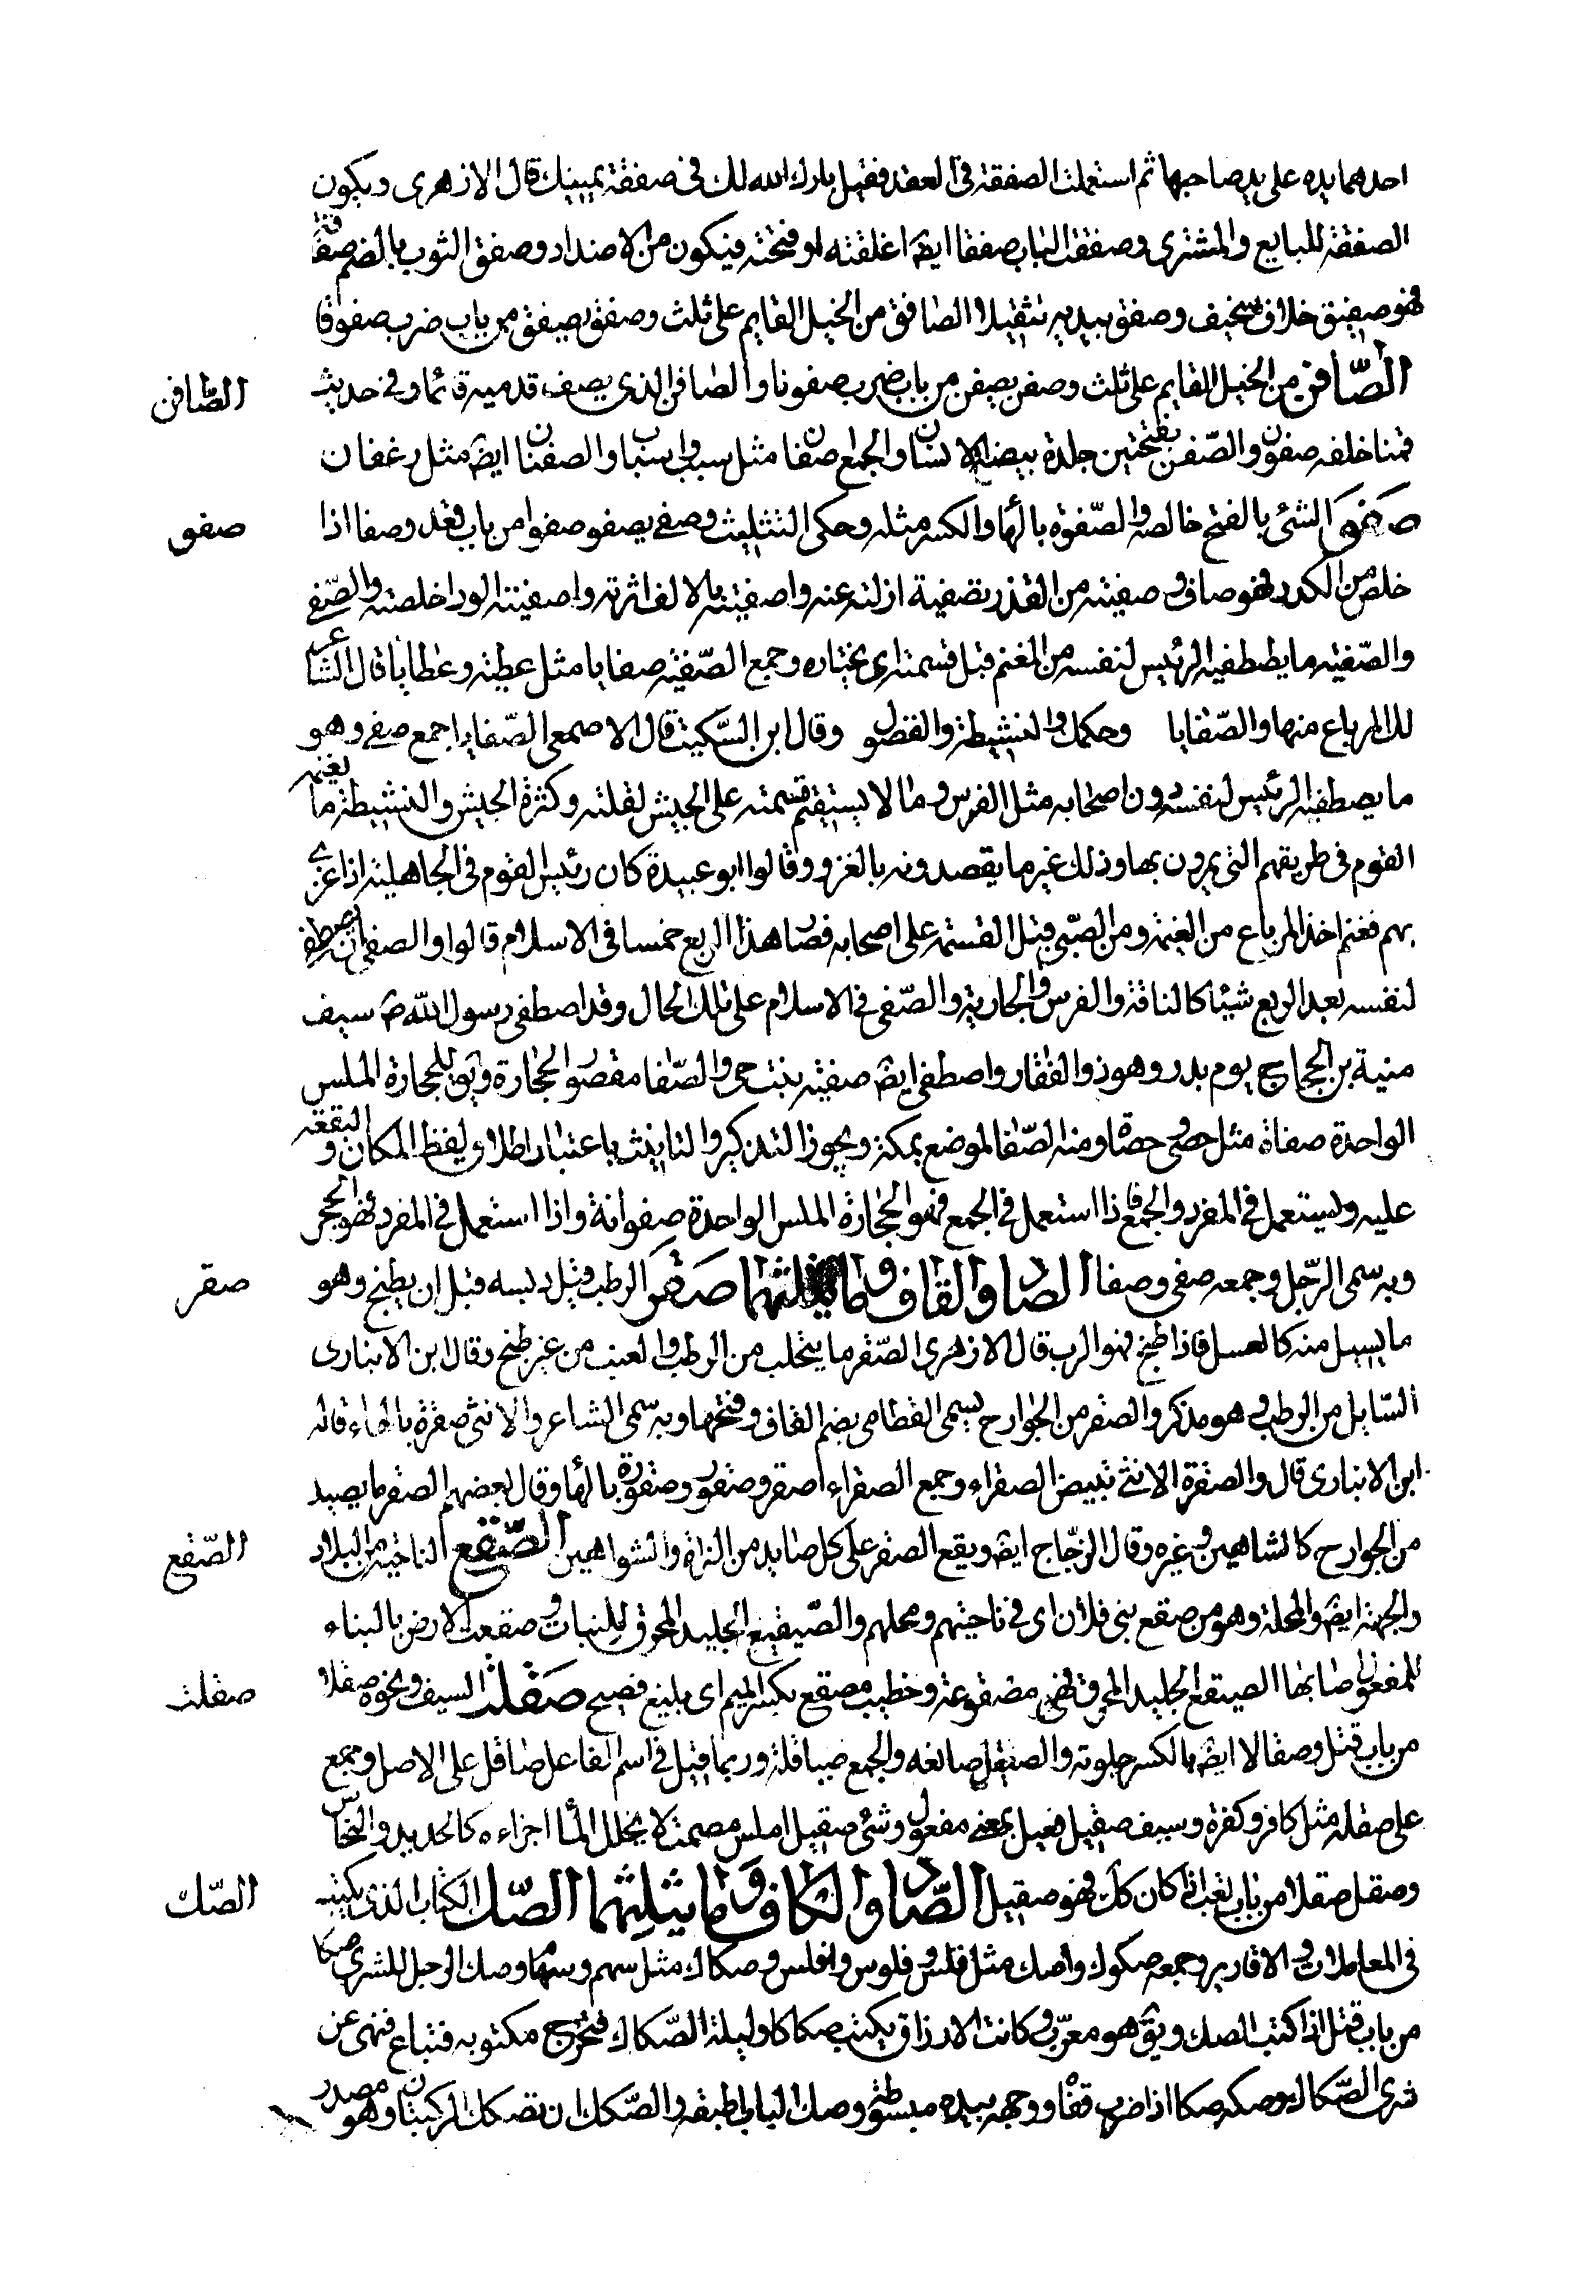 احدهما يده على يد صاحبها ثم استعملت الصفقة فى العقد فقيل بارك الله لك فى صفقة يمينك قال الازهرى ويكون
الصفقة للبايع والمشترى وصفقت الباب صفقا ايضا اغلقته او فتحته فيكون من الاضداد وصفق الثوب بالضم صفاقة
فهو صفيق خلاف سخيف وصفق بيديه تثقيلا الصافق من الخيل القايم على ثلث وصفق يصفق من باب ضرب صفوقا
الصّافن من الخيل القايم على ثلث وصفن يصفن من باب ضرب صفونا والصافن الذى يصف قدميه قائما وفى حديث
الصّافن
قمنا خلفه صفون والصّفن بفتحتين جلدة بيضة الانسان والجمع اصفان مثل سبب واسباب والصفنان ايضا مثل رغفان
صَفو الشئ بالفتح خالصه والصّفوة بالهاء والكسر مثله وحكى التثليث وصفى يصفو صفوا من باب قعد وصفا اذا
صفو
خلص من الكدر فهو صاف وصفيته من القذر تصفية ازلته عنه واصفيته بالالف اثرته واصفيته الود اخلصته والصّفى
والصّفية ما يصطفيه الرئيس لنفسه من المغنم قبل قسمته اى يختاره وجمع الصّفية صفايا مثل عطية وعطايا قال الشاعر
لك المرباع منها والصّفايا وحكمك والنشيطة والفضول وقال ابن السّكيت قال الاصمعى الصّفايا جمع صفى وهو
ما يصطفيه الرئيس لنفسه دون اصحابه مثل الفرس وما لا يستقيم قسمته على الجيش لقلته وكثرة الجيش والنشيطة ما يغنمه
القوم فى طريقهم التى يمرون بها وذلك غير ما يقصدونه بالغزو وقالوا ابو عبيدة كان رئيس القوم فى الجاهلية اذا غزى
بهم فغنم اخذ المرباع من الغنيمة ومن السّبى قبل القسمة على اصحابه فصار هذا الربع خمسا فى الاسلام قالوا والصفى ان يصطفى
لنفسه بعد الربع شيئا كالناقة والفرس والجارية والصّفى فى الاسلام على تلك الحال وقد اصطفى رسول الله ص سيف
منية بن الحجاج يوم بدر وهو ذو الفقار واصطفى ايضا صفية بنت حى والصّفا مقصور الحجارة ويق للحجارة الملس
الواحدة صفاة مثل حصى وحصاة ومنه الصّفا لموضع بمكة ويجوز التذكير والتانيث باعتبار اطلاق لفظ المكان والبقعة
عليه وليستعمل فى المفرد والجمع فاذا استعمل فى الجمع فهو الحجارة الملس الواحدة صفوانة واذا استعمل فى المفرد فهو الحجر
وبه سمى الرّجل وجمعه صفى وصفا الصاد والقاف وما يثلثهما صَقَر الرطب قيل دبسه قبل ان يطبخ وهو
صقر
ما يسيل منه كالعسل فاذا طبخ فهو الرب قال الازهرى الصّقر ما يتحلب من الرطب والعنب من غير طبخ وقال ابن الانبارى
السّايل من الرطب وهو مذكر والصقر من الجوارح يسمى القطامى بضم القاف وفتحها وبه سمى الشاعر والانثى صقرة بالهاء قاله
ابن الانبارى قال والصقرة الانثى تبيض الصقراء وجمع الصقراء اصقر وصقور وصقورة بالهاء وقال بعضهم الصقر ما يصيد
من الجوارح كالشاهين وغيره وقال الزجّاج ايضا ويقع الصقر على كل صايد من البزاة والشواهين الصّقع الناحية من البلاد
الصّقع
والجهة ايضا والمحلة وهو من صقع بنى فلان اى فى ناحيتهم ومحلهم والصّقيع الجليد المحرق للنبات وصقعت الارض بالبناء
للمفعول اصابها الصقيع الجليد المحرق فهى مصقوعة وخطيب مصقع بكسر الميم اى بليغ فصيح صَقَلت السيف ونحوه صقلا
صقلت
من باب قتل وصقالا ايضا بالكسر جلوته والصيقل صانعه والجمع صياقلة وربما قيل فى اسم الفاعل صاقل على الاصل وجمع
على صقلة مثل كافر وكفرة وسيف صقيل فعيل بمعنى مفعول وشئ صقيل املس مصمت لا يخلل الماء اجزاءه كالحديد والنحاس
وصقل صقلا من باب تعب اذا كان كك فهو صقيل الصّاد والكاف وما يثلثهما الصّك الكتاب الذى يكتب
الصّك
فى المعاملات والاقارير وجمعه صكوك واصك مثل فلس وفلوس وافلس وصكاك مثل سهم وسهام وصك الرجل للمشترى صكا
من باب قتل اذا كتب الصك ويق هو معرّب وكانت الارزاق يكتب صكاكا وليلة الصّكاك فتخرج مكتوبه فتباع فنهى عن
شرى الصّكاك وصكه صكا اذا ضرب قفاه ووجهه بيده مبسوطة وصك الباب اطبقه والصّكك ان تصكك الركبتان وهو مصدر